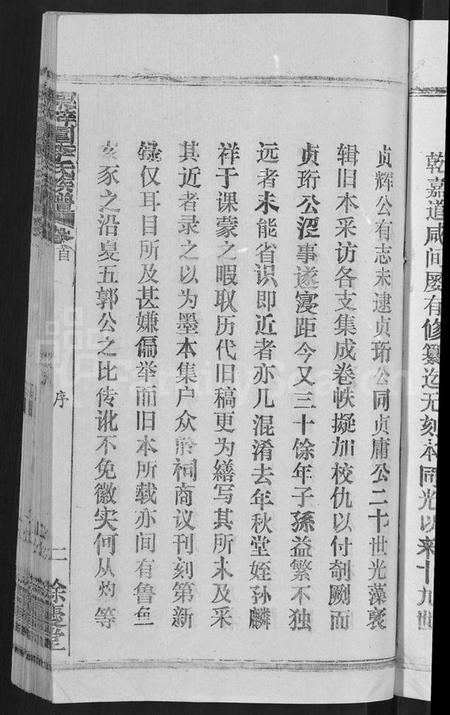 乾嘉道咸间屡有修纂迄无刻本同光以来十九世
贞辉公有志未逮贞珩公同贞庸公二十世光藻裒
辑旧本采访各支集成卷帙擬加校仇以付剞劂而
贞珩公涖事遂寝距今又三十馀年子孫益繁不独
远者未能省识即近者亦几混淆去年秋堂姪孙麟
祥于课蒙之暇取历代旧稿更为繕写其所未及采
其近者录之以为墨本集户众於祠商议刊刻第新
録仅耳目所及甚嫌偏举而旧本所载亦间有鲁鱼
亥豕之沿夏五郭公之比传讹不免徵实何从灼等
首
序
二
馀慶堂